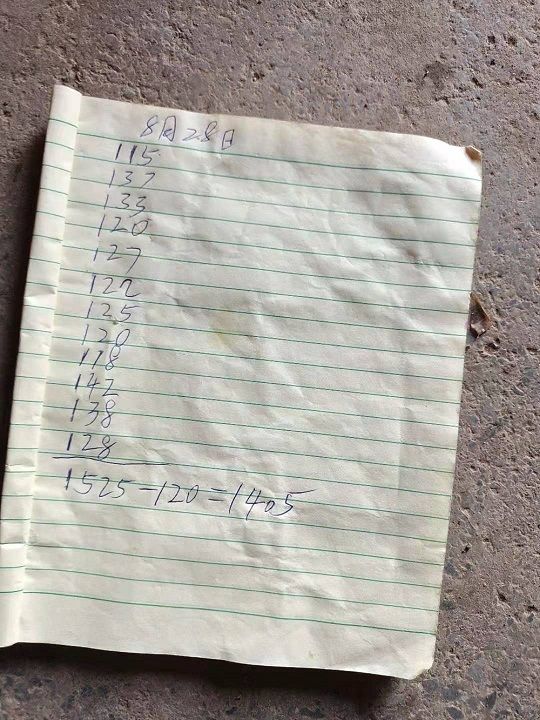 8月28日
115
137
133
120
127
122
125
120
118
142
138
128
1525-120=1405